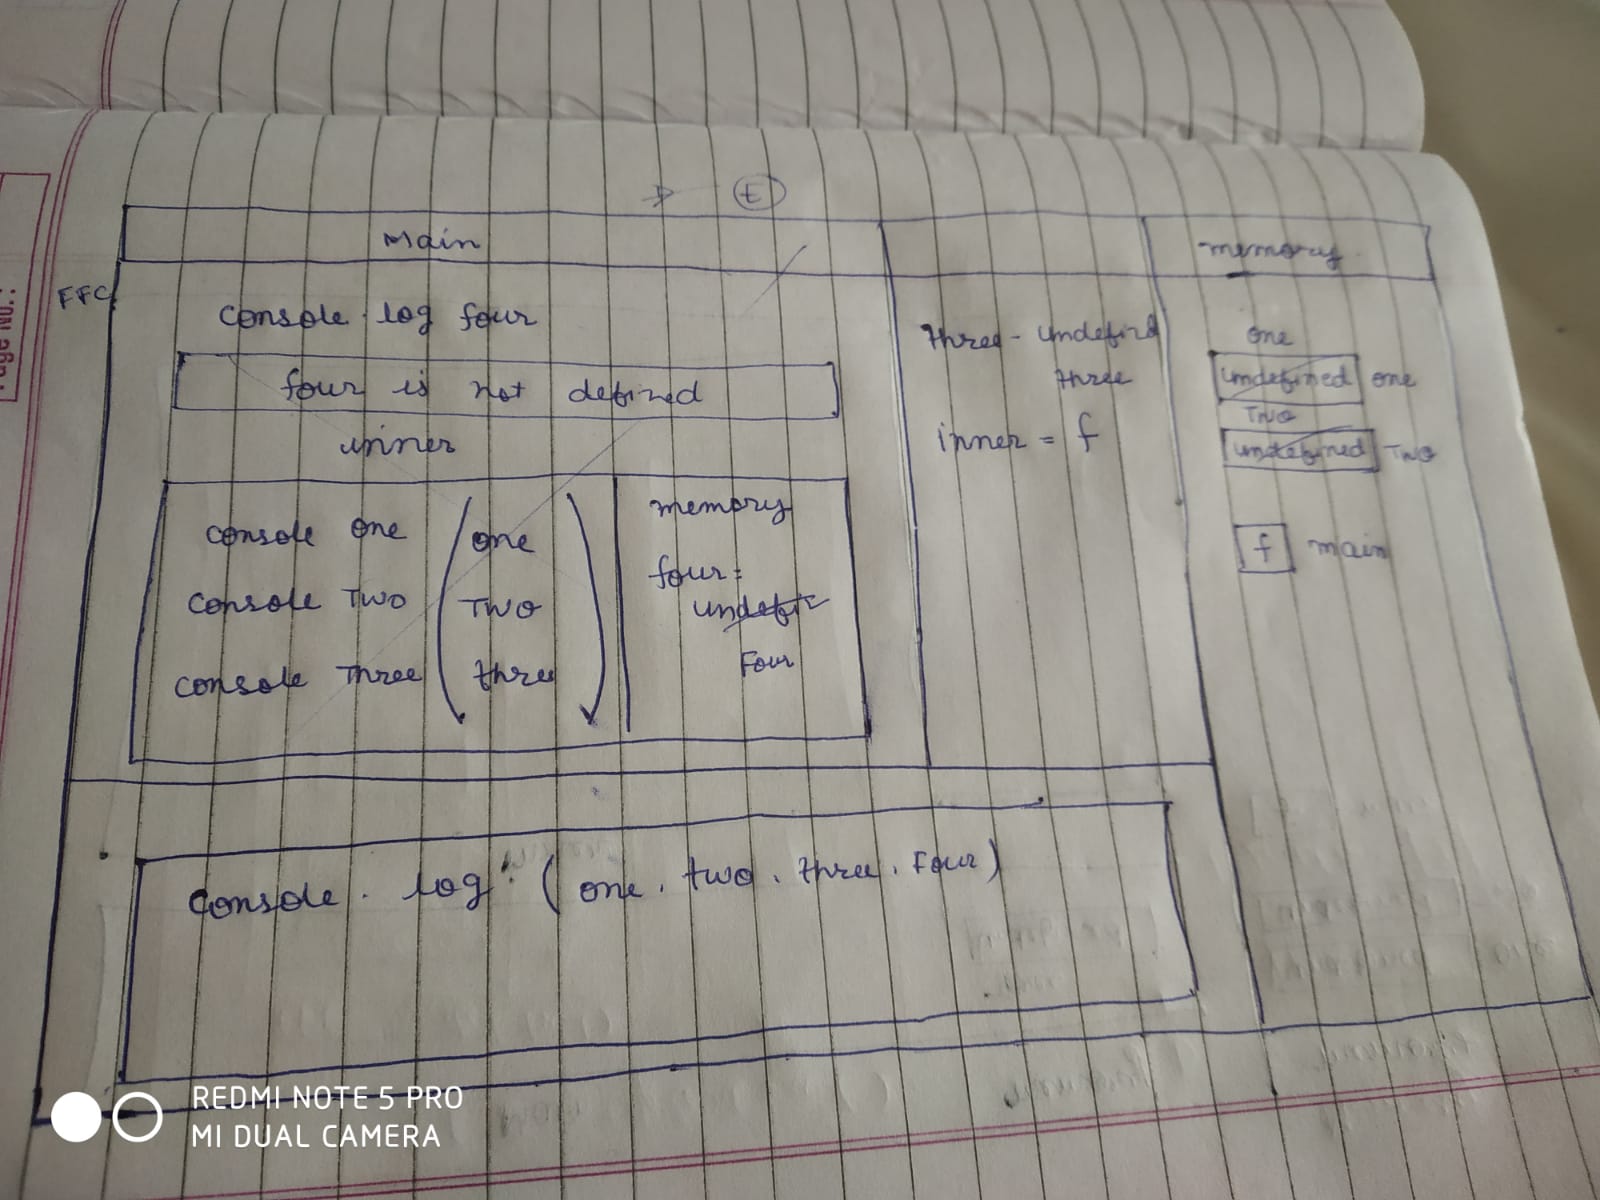 E
Main
memory
FFC
console.log four
four is not defined
inner
console one
one
console Two
Two
console Three
three
memory
four =
undefi
Four
three - undefind
three
inner = f
one
undefined one
Two
undefined Two
f main
console. log. (one. two. three. Four)
REDMI NOTE 5 PRO
MI DUAL CAMERA